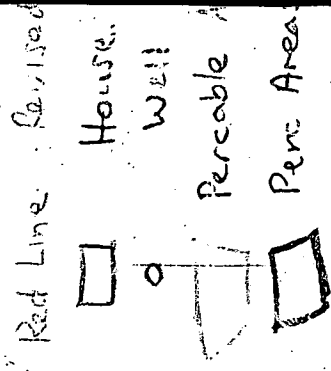 Red Line Revised
House
Well
Percable
Perc Area